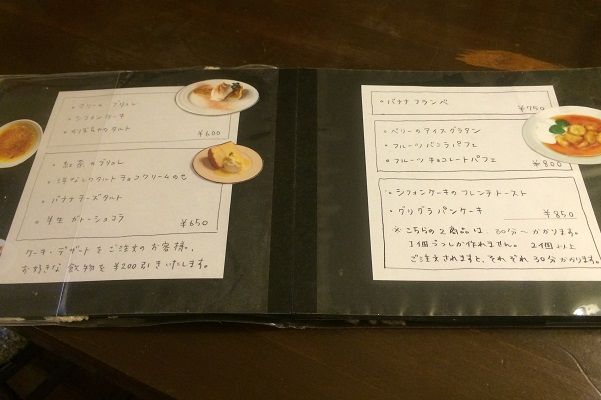 。クリーム ブリュレ
。シフォンケーキ
。かぼちゃのタルト
¥600
。紅茶のブリュレ
。洋なしのタルト チョコクリームのせ
。バナナチーズタルト
。半生 ガトーショコラ
¥650
ケーキ・デザートをご注文のお客様、
お好きな飲物を¥200引きいたします。
。バナナフランベ
¥750
。ベリーのアイスグラタン
。フルーツバニラパフェ
。フルーツチョコレートパフェ
¥800
。シフォンケーキのフレンチトースト
。グリグラパンケーキ
¥850
※こちらの2商品は、30分〜かかります。
1個ずつしか作れません。2個以上
ご注文されますと、それぞれ30分かかります。